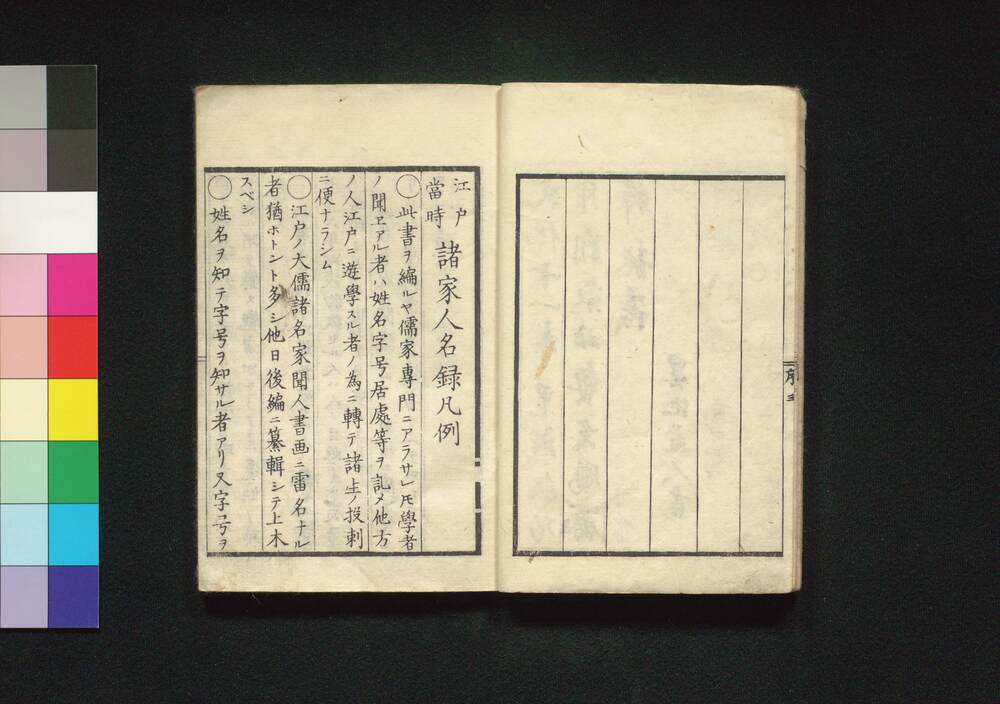 序 三
江戸
當時
諸家人名録凡例
◯此書ヲ編ルヤ儒家專門ニアラサレ𪜈學者
ノ聞ヱアル者ハ姓名字号居處等ヲ記メ他方
ノ人江戸ニ遊學スル者ノ為ニ轉テ諸生ノ投刺
ニ便ナラシム
◯江戸ノ大儒諸名家聞人書画ニ雷名ナル
者猶ホトント多シ他日後編ニ纂輯シテ上木
スベシ
◯姓名ヲ知テ字号ヲ知サル者アリ又字号ヲ